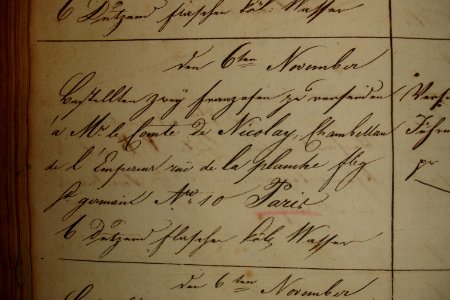 6 Dutzend flaschen köl: Wasser
den 6ten November
Bestellten zwey franzosen zu versenden
à Mr. le Comte de Nicolay, Chambellan
de l'Empereur rue de la planche fbg
St. germain No. 10 Paris
6 Dutzend flaschen köln Wasser
den 6ten November